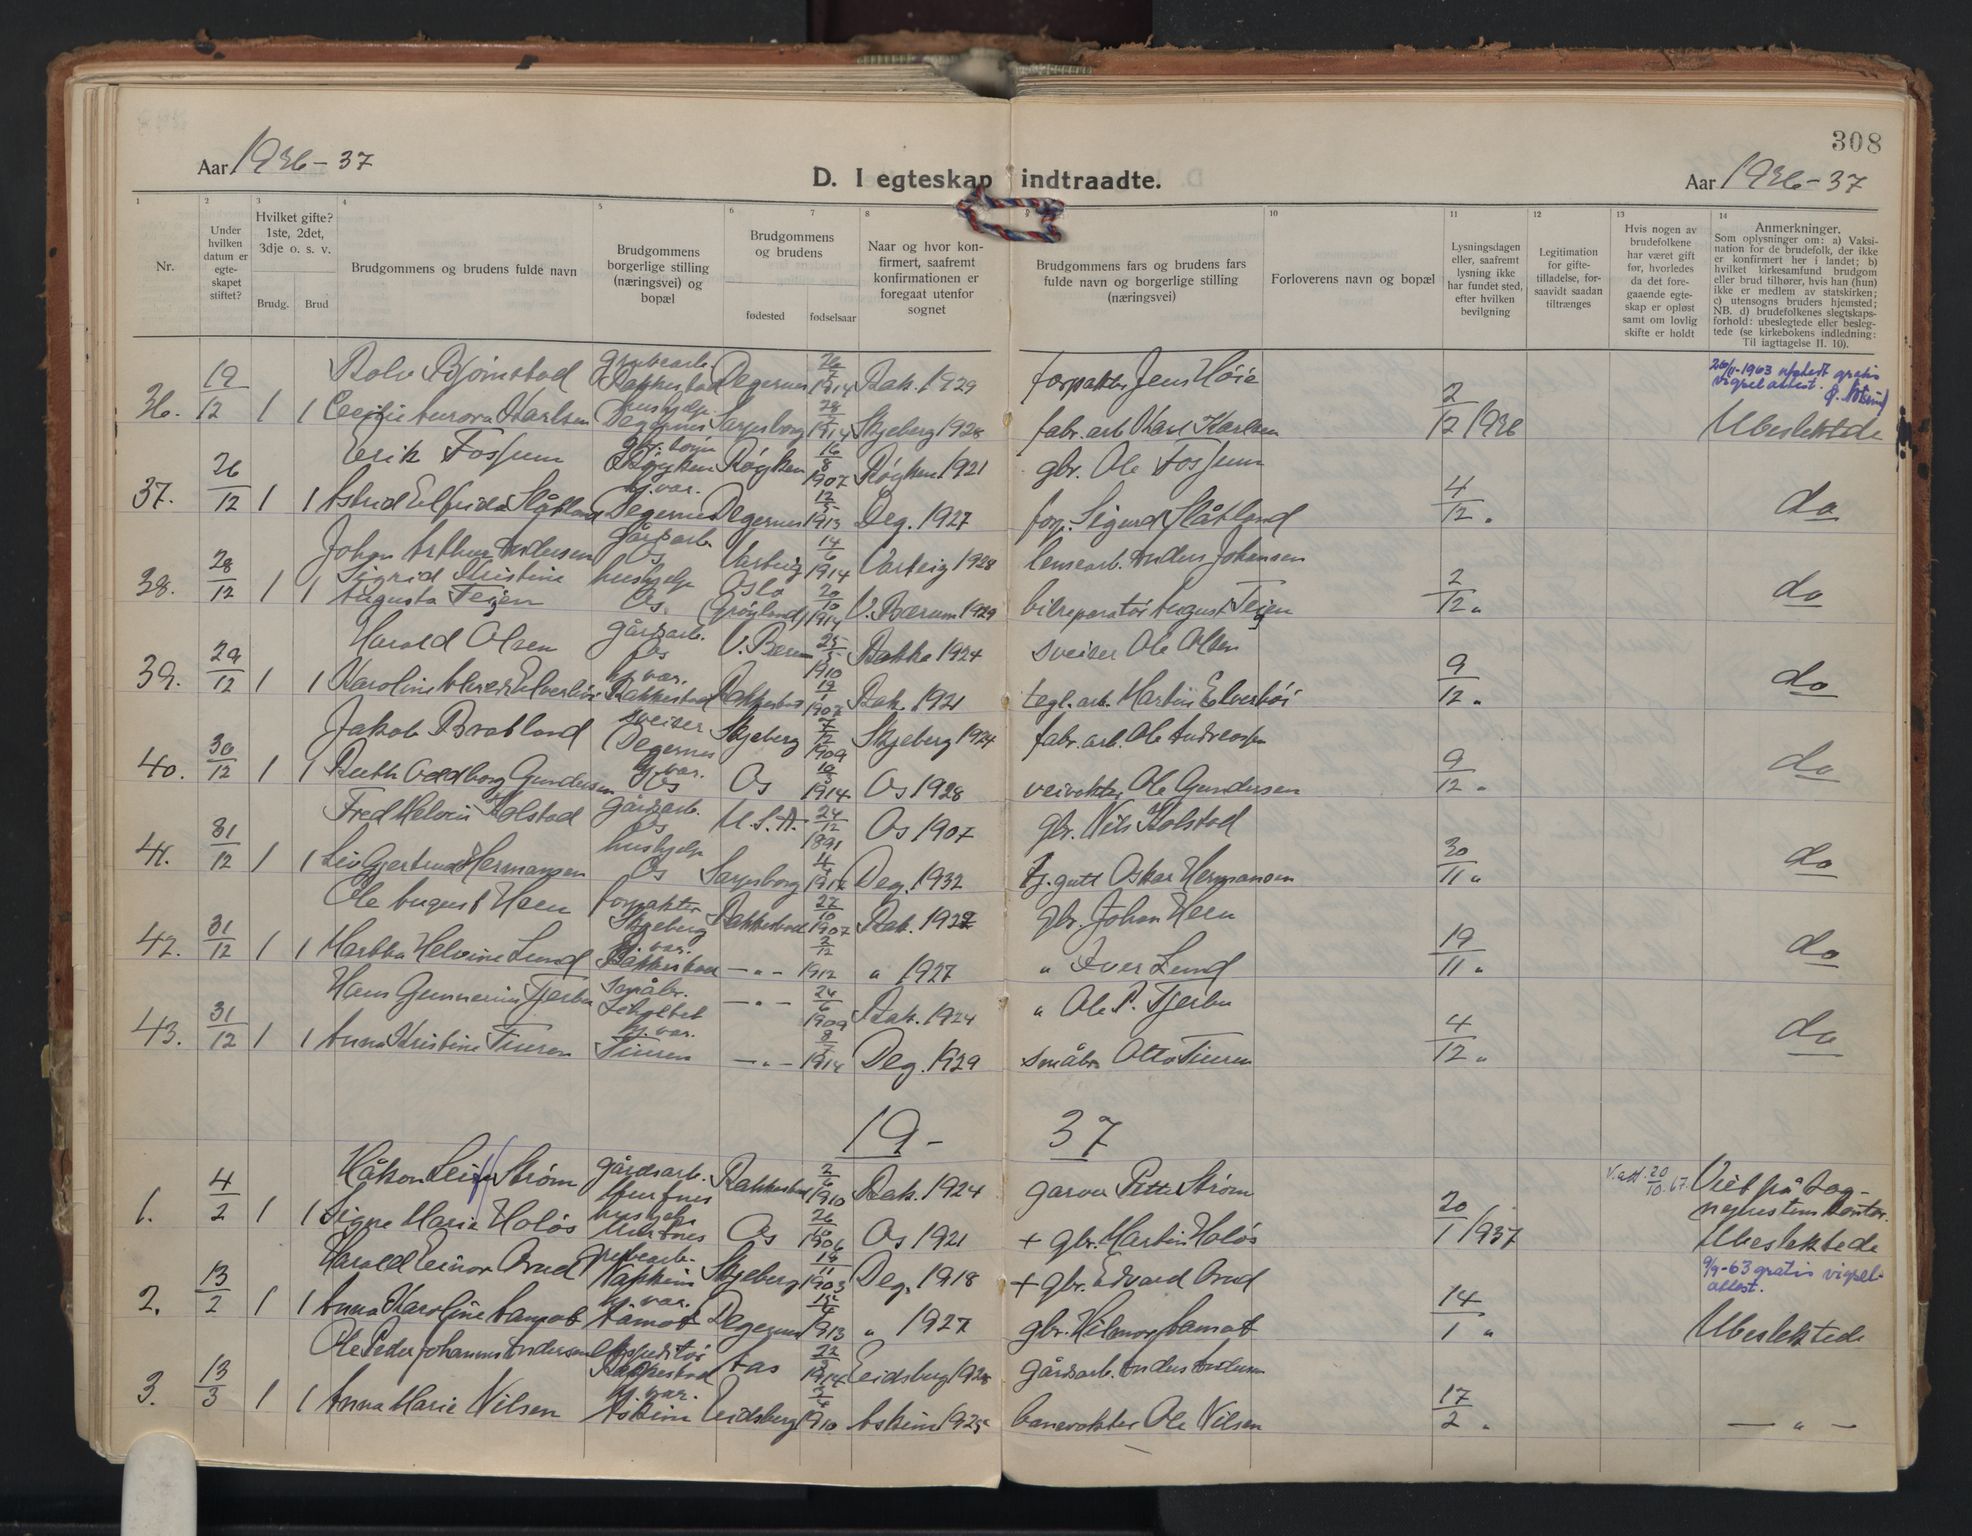 308
Aar 1936-37
D. I egteskap indtraadte.
Aar 1936-37
1 2 3 4 5 6 7 8 9 10 11 12 13 14
Nr.
Under hvilken datum er egte-skapet stiftet?
Hvilket gifte? 1ste, 2det, 3dje o. s. v.
Brudg. Brud
Brudgommens og brudens fulde navn
Brudgommens borgerlige stilling (næringsvei) og bopæl
Brudgommens og brudens
fødested fødselsaar
Naar og hvor kon-firmert, saafremt konfirmationen er foregaat utenfor sognet
Brudgommens fars og brudens fars fulde navn og borgerlige stilling (næringsvei)
Forloverens navn og bopæl
Lysningsdagen eller, saafremt lysning ikke har fundet sted, efter hvilken bevilgning
Legitimation for gifte-tilladelse, for-saavidt saadan tiltrænges
Hvis nogen av brudefolkene har været gift før, hvorledes da det fore-gaaende egte-skap er opløst samt om lovlig skifte er holdt
Anmerkninger.
Som oplysninger om: a) Vaksi-nation for de brudefolk, der ikke er konfirmert her i landet; b) hvilket kirkesamfund brudgom eller brud tilhører, hvis han (hun) ikke er medlem av statskirken; c) utensogns bruders hjemsted; NB. d) brudefolkenes slegtskaps-forhold: ubeslegtede eller besleg-tede (se kirkebokens indledning: Til iagttagelse II. 10).
Rolv Bjørnstad grubearb. Rakkestad Degernes 1914 Rak. 1929 forpakter Jens Høie
36. 19/12 1 1 Cecilie Aurora Karlsen hushjelp Degernes Sarpsborg 1914 Skjeberg 1928 fabr. arb. Karl Karlsen 2/12 1936 Ubeslektede
Erik Fossum Røyken Røyken 16/8 1907 Røyken 1921 gbr. Ole Fossum
37. 26/12 1 1 Astrid Elfrida Slåtland hj. var. Degernes Degernes 1913 Deg. 1927 forp. Sigurd Slåtland 4/12 " do
Johan Arthur Andersen gårdsarb. Os Varteig 14/6 1914 Varteig 1928 lensearb. Anders Johansen
38. 28/12 1 1 Sigrid Kristine Augusta Teijen hushjelp Os Oslo (Grønland) 20/10 1914 V. Bærum 1929 bilreparatør August Teijen 2/12 " do
Harald Olsen gårdsarb. Os V. Bærum 25/5 1910 Bakke 1924 sveiser Ole Olsen
39. 29/12 1 1 Karoline Elverhøi hj. var. Rakkestad Rakkestad 1907 Rak. 1921 tegl. arb. Martin Elverhøi 9/12 " do
Jakob Bratland sveiser Degernes Skjeberg 7/12 1909 Skjeberg 1924 fabr. arb. Ole Andreassen
40. 30/12 1 1 Ruth Oddborg Gundersen hj. var. Os Os 1914 Os 1928 veivokter Ole Gundersen 9/12 " do
Fred Helvin Kolstad gårdsarb. Os U.S.A. 24/12 1891 Os 1907 gbr. Nils Kolstad
41. 31/12 1 1 Liv Gjertrud Hermansen hushjelp Os Sarpsborg 1917 Deg. 1932 Oskar Hermansen 30/11 " do
Ole August Heen forpakter Skjeberg Rakkestad 27/10 1907 Rak. 1922 gbr. Johan Heen
42. 31/12 1 1 Martha Helvine Lund hj. var. Rakkestad — " — 2/12 1912 " 1927 " Iver Lund 19/11 " do
Hans Gunnerius Tjerbu småbr. — " — 24/6 1909 Rak. 1924 " Ole P. Tjerbu
43. 31/12 1 1 Anna Kristine Tiuren hj. var. Tiuren — " — 1914 Deg. 1929 småbr. Otto Tiuren 4/12 " do
19- 37
Håkon Leif Strøm gårdsarb. Rakkestad 2/6 1910 Rak. 1924 garver Petter Strøm
1. 4/2 1 1 Signe Marie Holøs hushjelp Os 1906 Os 1921 + gbr. Martin Holøs 20/1 1937 V. att 20/10 67. Viet på sog-
Ubeslektede
Harald Einar Brud grubearb. Skjeberg 1903 Deg. 1918 + gbr. Edvard Brud
9/9-63 gratis vigsel-attest.
2. 13/2 1 1 Anna Karoline Aamot hj. var. Åmot Degernes 1913 " 1927 gbr. Hilmar Aamot 14/1 " Ubeslektede
Ole Peder Johannes Andersen ekspeditør Rakkestad Aas 1914 Eidsberg 1928 gårdsarb. Anders Andersen
3. 13/3 1 1 Anna Marie Nilsen hj. var. Askim Eidsberg 1910 Askim 1925 banevokter Ole Nilsen 17/2 " — " —